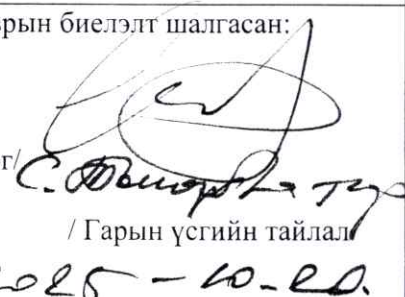 рын биелэлт шалгасан:
г/ С. Төмөрбаатар
/ Гарын үсгийн тайлал
2025-10-20.